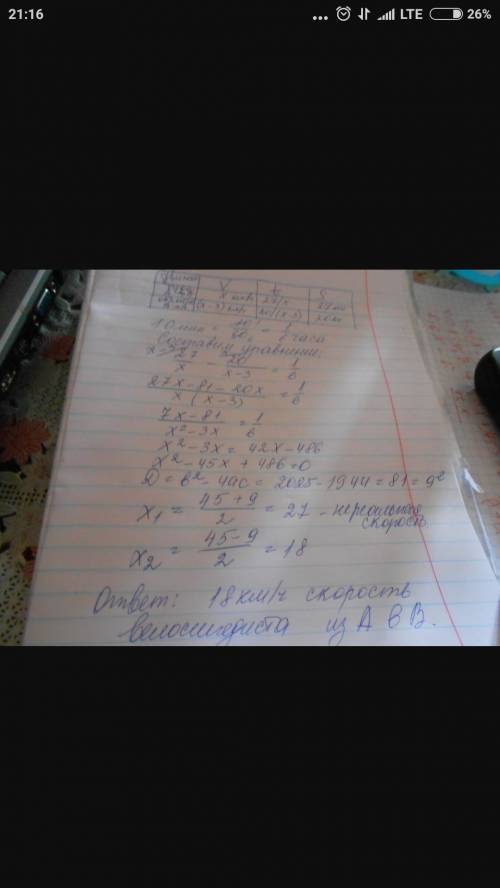 21:16
... LTE 26%
V t S
x
10 мин = 10/60 = 1/6 часа
Составим уравнение.
27/x - 20/(x-3) = 1/6
(27x-81-20x)/(x(x-3)) = 1/6
(7x-81)/(x²-3x) = 1/6
x²-3x = 42x-486
x²-45x+486=0
D = b²-4ac = 2025-1944=81=9²
x₁ = (45+9)/2 = 27 - нереальная
скорость
x₂ = (45-9)/2 = 18
Ответ: 18 км/ч скорость
велосипедиста из А в В.